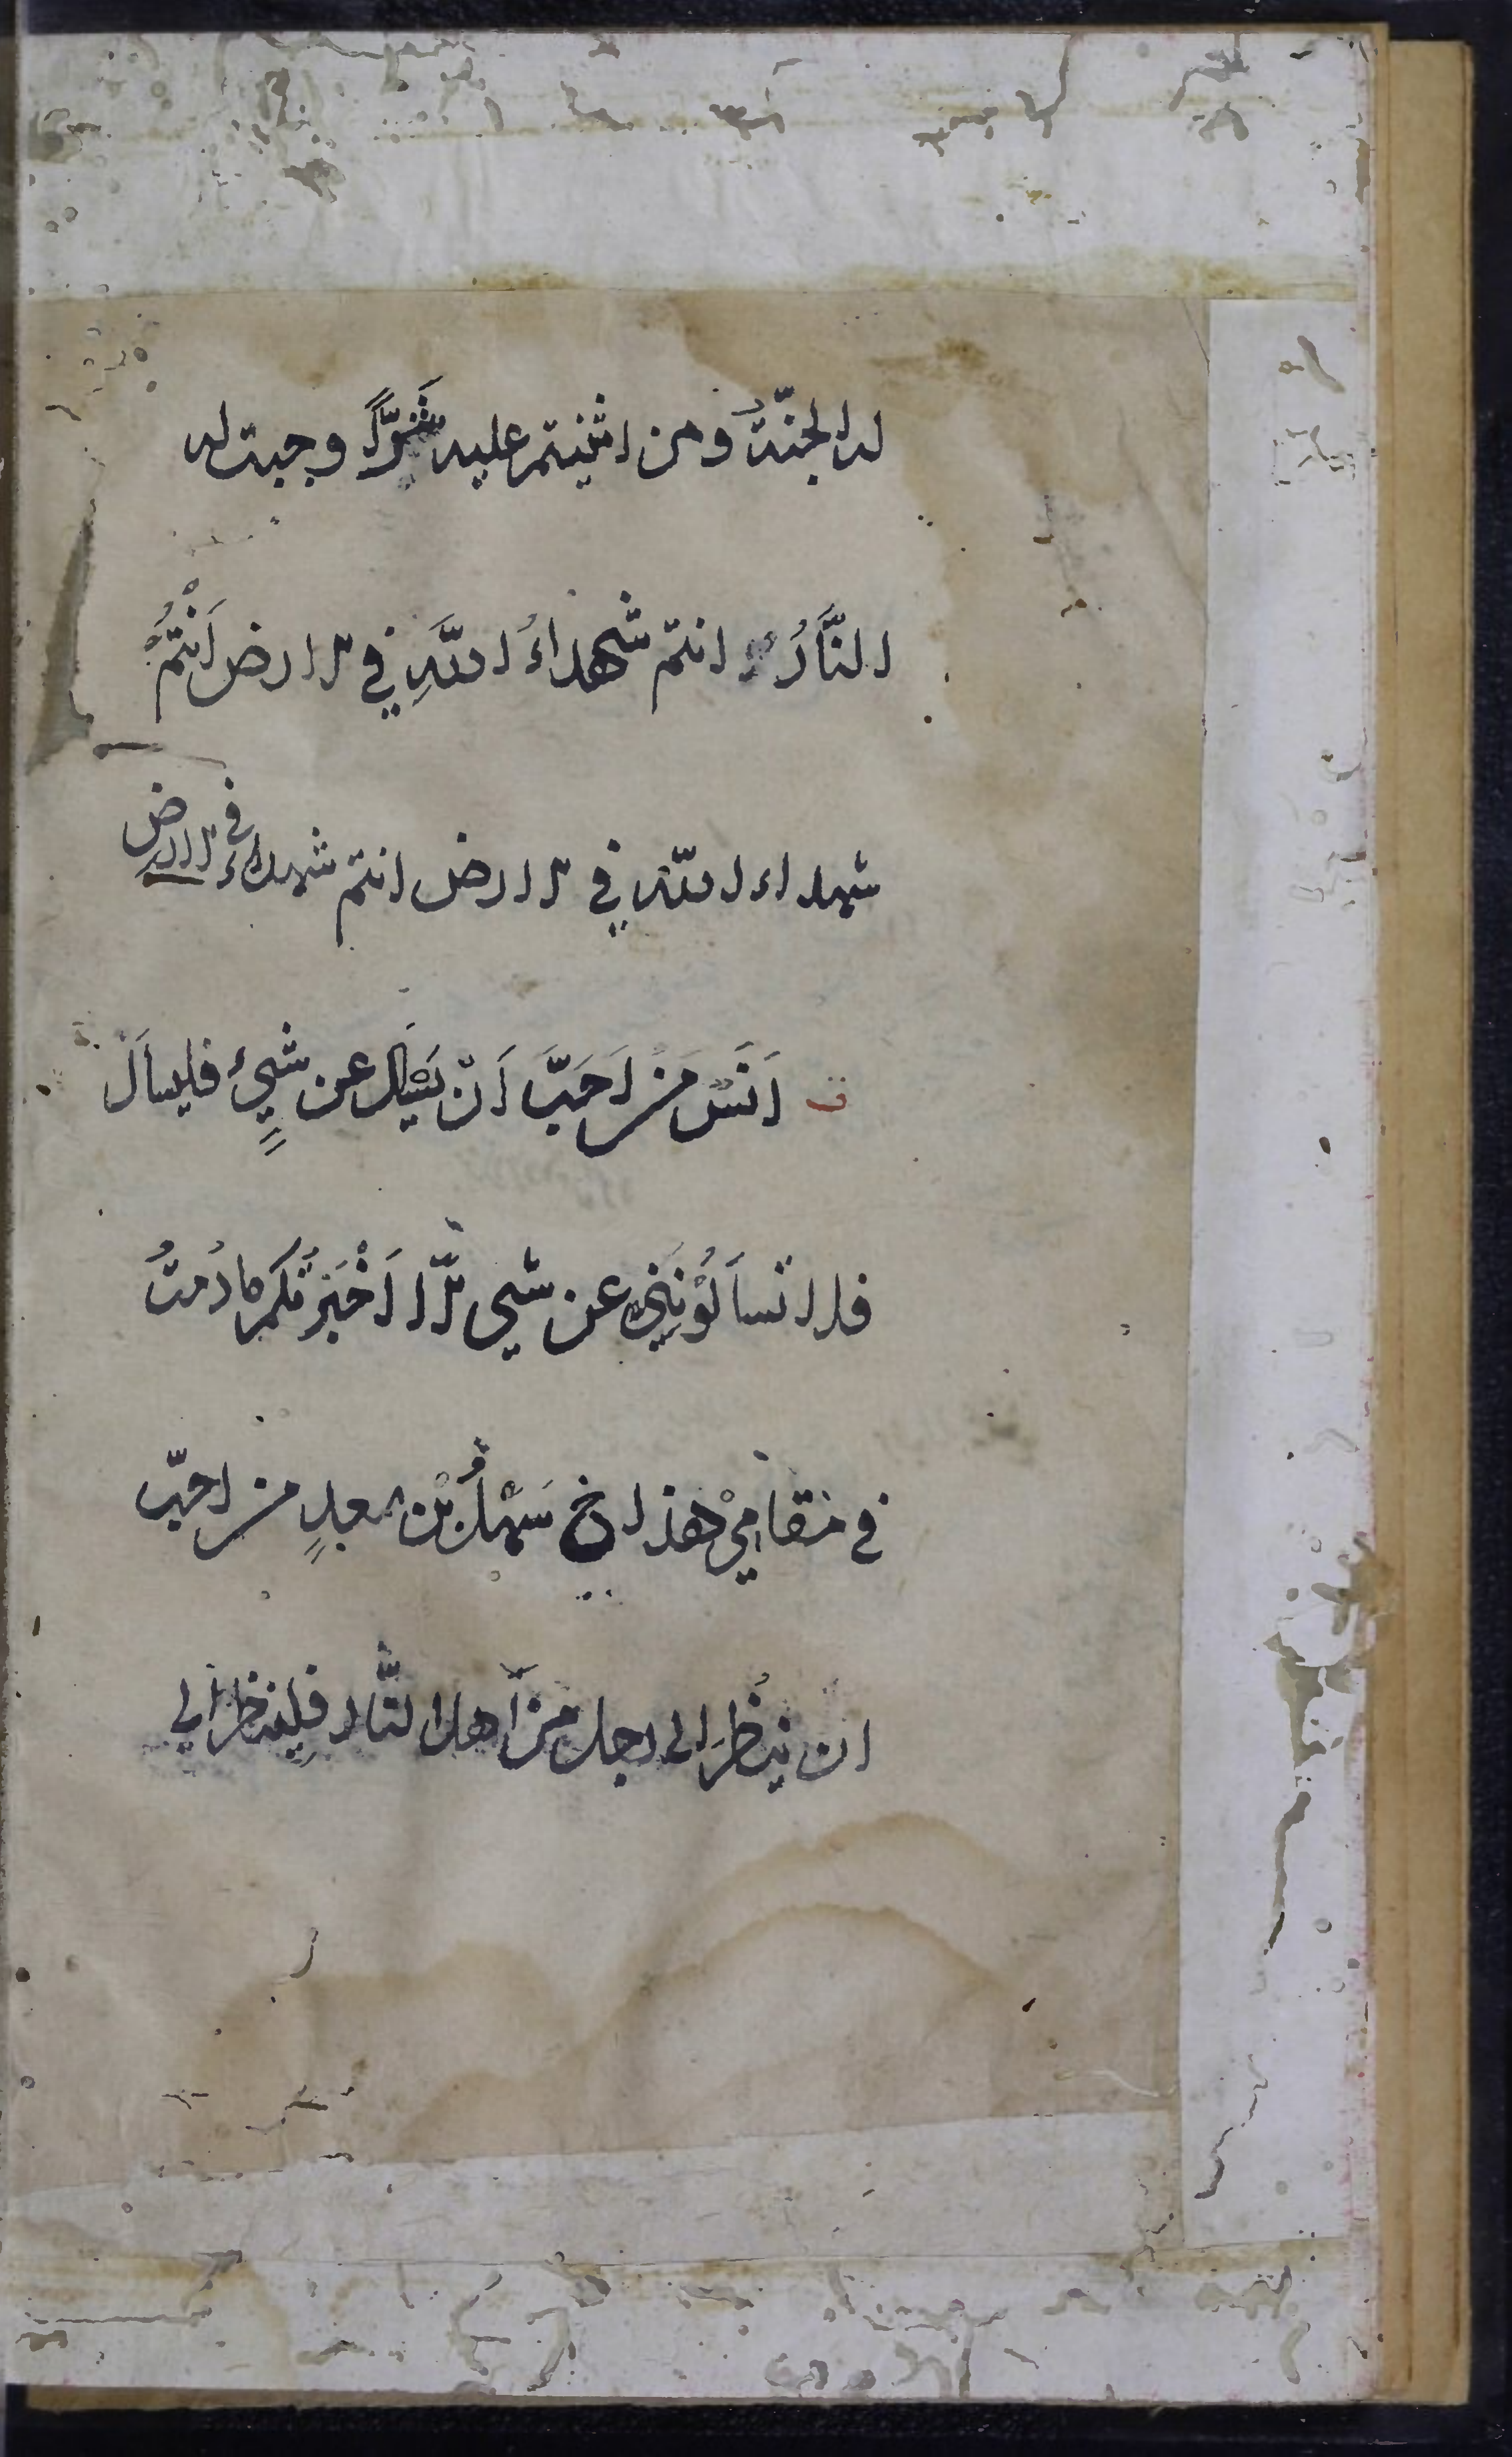 له الجنّةُ ومن اثنيتم عليه شَرًّا وجبت له
النَّارُ انتم شهداءُ اللّهِ في الارض اَنْتُمْ
شهداء اللّه في الارض انتم شهداء في الارض
ق اَنَسٌ مَن اَحَبَّ اَنْ يَسْاَلَ عن شَيْءٍ فليسأَلْ
فلا تسأَلُوْنِيْ عن شيء الَّا اَخْبَرْتُكم ما دُمْتُ
في مَقَامِيْ هذا خ سَهْلُ بْن سعدٍ من احبّ
ان ينظُرَ الى رجل من اَهل النَّار فلِينظر الى